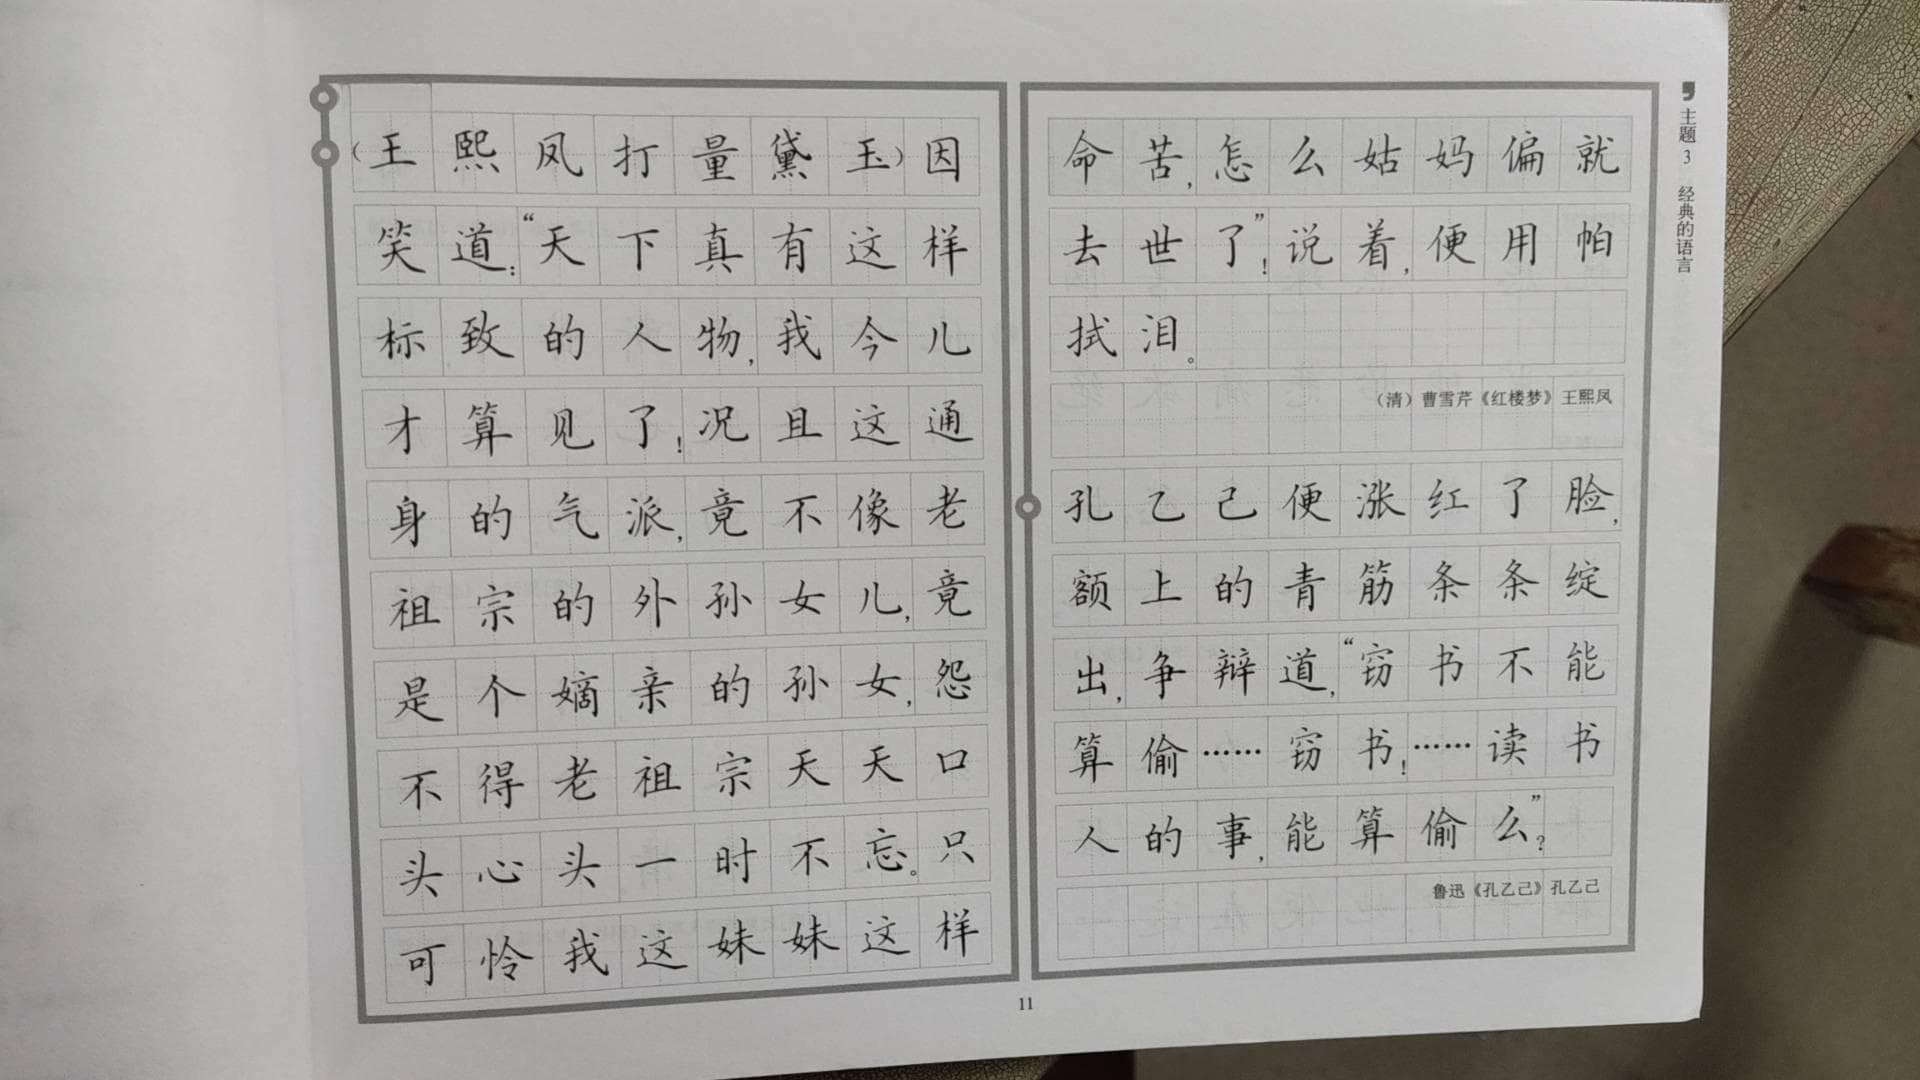 （王熙凤打量黛玉）因
笑道：“天下真有这样
标致的人物，我今儿
才算见了！况且这通
身的气派，竟不像老
祖宗的外孙女儿，竟
是个嫡亲的孙女，怨
不得老祖宗天天口
头心头一时不忘。只
可怜我这妹妹这样
命苦，怎么姑妈偏就
去世了！”说着，便用帕
拭泪。
（清）曹雪芹《红楼梦》王熙凤
孔乙己便涨红了脸，
额上的青筋条条绽
出，争辩道，“窃书不能
算偷……窃书！……读书
人的事，能算偷么？”
鲁迅《孔乙己》孔乙己
主题3 经典的语言
11